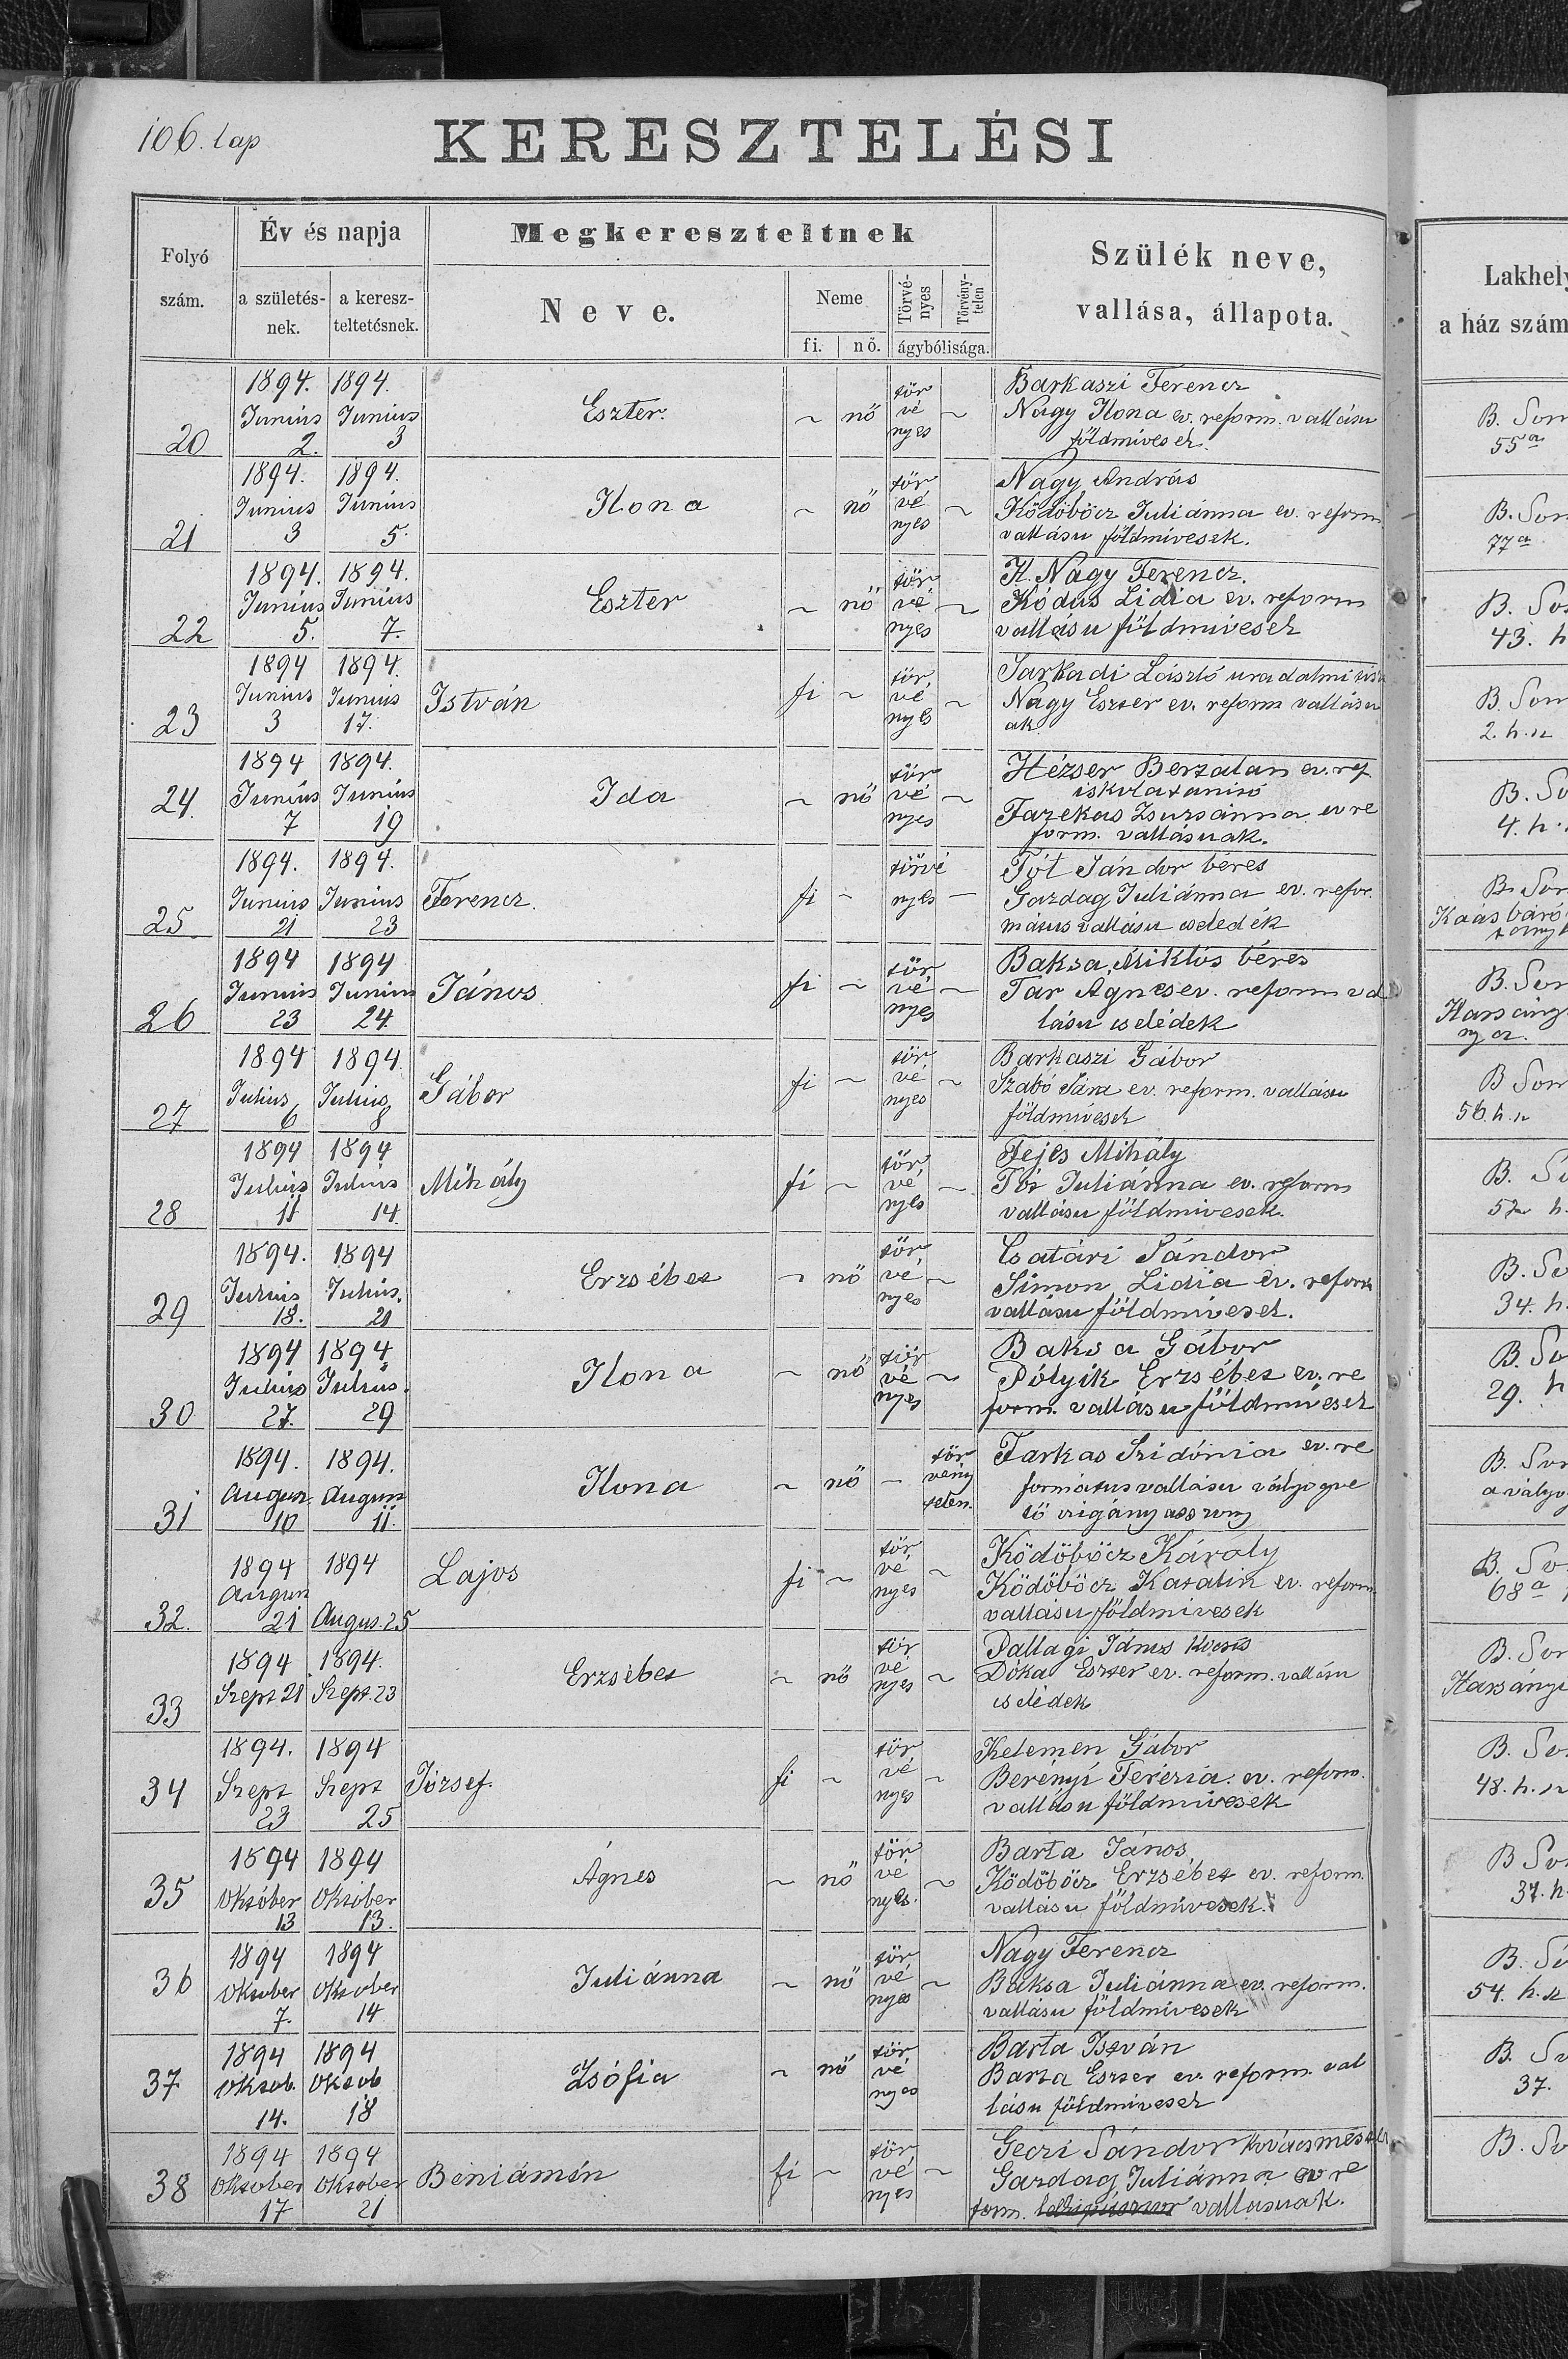 106. lap
KERESZTELÉSI
Folyó szám.
Év és napja
a születés-nek.
a keresz-teltetésnek.
Megkereszteltnek
Neve.
Neme
fi.
nő.
Törvé-nyes
Törvény-telen
ágybólisága.
Szülék neve,
vallása, állapota.
Lakhely
a ház szám
20 1894. Junius 2. 1894. Junius 3 Eszter. ~ nő tör vé nyes ~
Barkaszi Ferencz
Nagy Ilona ev. reform. vallásu
földmivesek.
B. Som
55 a
21 1894. Junius 3 1894. Junius 5. Ilona ~ nő tör vé nyes ~
Nagy András
Ködöböcz Juliánna ev. reform
vallásu földmivesek.
B. Som
77 a
22 1894. Junius 5. 1894. Junius 7. Eszter ~ nő tör vé nyes ~
K. Nagy Ferencz.
Kódus Lidia ev. reform
vallásu földmivesek
B. So
43. h
23 1894 Junius 3 1894. Junius 17. István fi ~ tör vé nyes ~
Sarkadi László uradalmi
Nagy Eszter ev. reform vallásu
ak.
B. Som
2. h. n
24. 1894 Junius 7 1894. Junius 19 Ida ~ nő tör vé nyes ~
Hézser Bertalan ev. ref.
iskolatanitó
Fazekas Zsuzsánna ev re
form. vallásuak.
B. So
4. h.
25 1894. Junius 21 1894. Junius 23 Ferencz. fi ~ törvé nyes —
Tót Sándor béres
Gazdag Juliánna ev. refor.
mátus vallásu cselédék
B. Som
Kaás báró
26 1894 Junius 23 1894 Junius 24. János fi ~ tör vé nyes ~
Baksa Miklós béres
Tar Ágnes ev. reform val
lásu cselédek
B. Som
Harsány
27 1894 Julius 6 1894. Julius 8 Gábor fi ~ tör vé nyes ~
Barkaszi Gábor
Szabó Sára ev. reform. vallásu
földmivesek
B Som
56. h. n
28 1894 Julius 11 1894 Julius 14. Mihály fi ~ tör vé nyes ~
Fejes Mihály
Tót Juliánna ev. reform
vallásu földmivesek.
B. So
29 1894. Julius 18. 1894 Julius. 21 Erzsébet ~ nő tör vé nyes ~
Csatári Sándor
Simon Lidia ev. reform
vallásu földmivesek.
B. So
34. h.
30 1894 Julius 27. 1894 Julius. 29 Ilona ~ nő tör vé nyes ~
Baksa Gábor
Pólyik Erzsébet ev. re
form. vallásu földmivesek
B. So
29. h
31 1894. Augusz. 10 1894. Augusz 11. Ilona ~ nő ~ tör vény telen.
Farkas Szidónia ev. re
formátus vallásu vályogve
tő czigány asszony
B. Som
a vályo
32. 1894 Augusz 21 1894 Augus. 25 Lajos fi ~ tör vé nyes ~
Ködöböcz Károly
Ködöböcz Katalin ev. reform.
vallásu földmivesek
B. So
68 a
33 1894 Szept 21 1894. Szept. 23 Erzsébet ~ nő tör vé nyes ~
Pallagi János kocsis
Dóka Eszter ev. reform. vallásu
cselédek
B. Som
Harsányi
34 1894. Szept 23 1894 Szept 25 József. fi ~ tör vé nyes ~
Kelemen Gábor
Berenyi Terézia. ev. reform.
vallásu földmivesek
B. So
48. h. n
35 1894 Október 13 1894 Október 13. Ágnes ~ nő tör vé nyes. ~
Barta János
Ködöböcz Erzsébet ev. reform.
vallásu földmivesek.
B So
37. h
36 1894 Oktober 7. 1894 Oktober 14 Juliánna ~ nő tör vé nyes ~
Nagy Ferencz
Baksa Juliánna ev. reform.
vallásu földmivesek
B. So
54. h. n
37 1894 Oktob. 14. 1894 Oktob 18 Zsófia ~ nő tör vé nyes
Barta István
Barta Eszter ev. reform. val
lásu földmivesek
B. So
37.
38 1894 Oktober 17 1894 Oktober 21 Beniámin fi ~ tör vé nyes ~
Géczi Sándor kovácsmester
Gazdag Juliánna ev re
form. vallásuak.
B. So